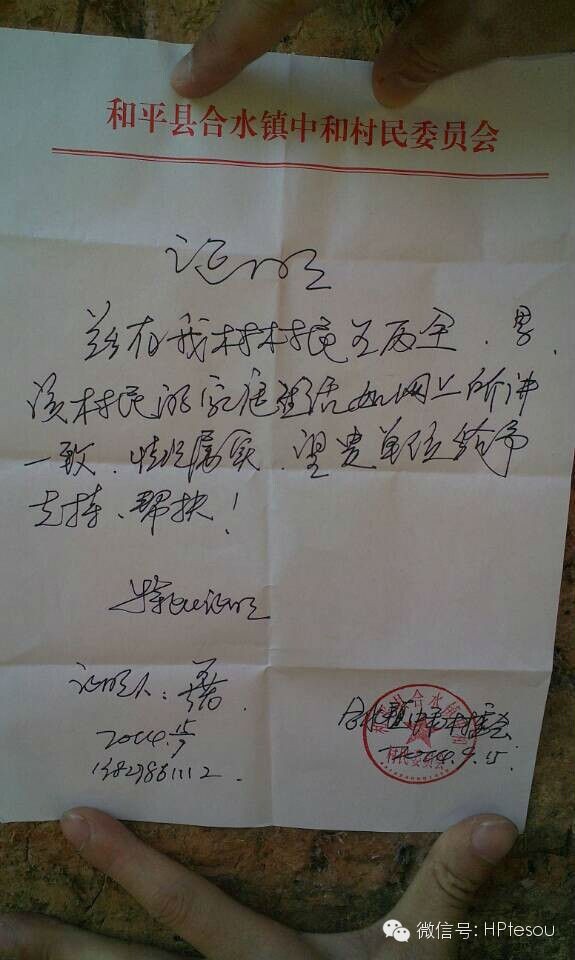 和平县合水镇中和村民委员会
证明
兹有我村村民王丙全、男、
该村民的家庭生活如网上所讲
一致、情况属实、望贵单位给予
支持、帮扶!
特此证明
证明人:
合水镇中和村委会
村民委员会
微信号: HPtesou